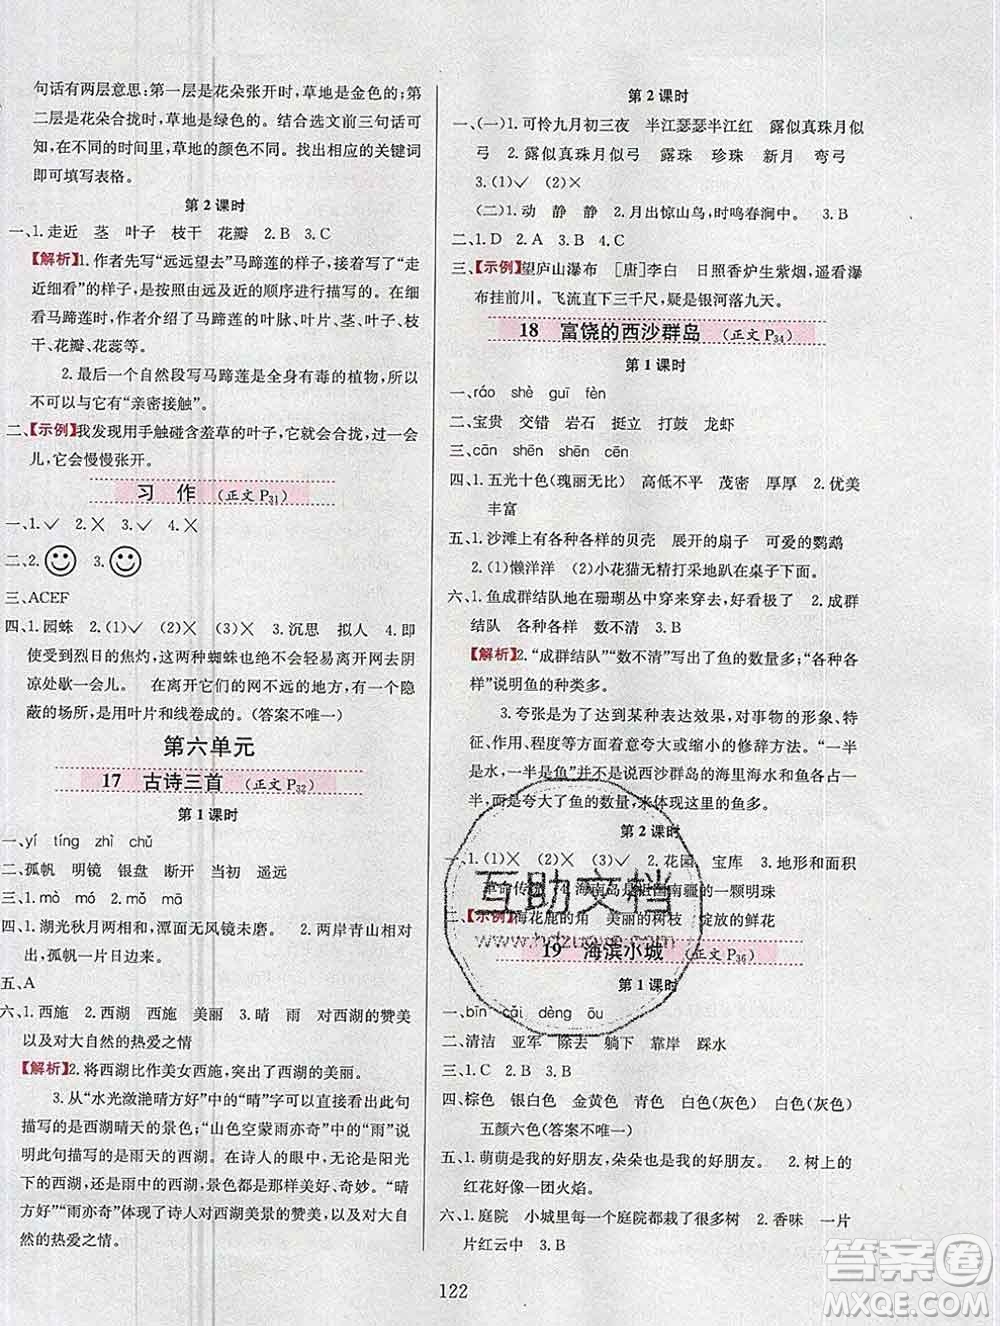 句话有两层意思:第一层是花朵张开时,草地是金色的;
第二层是花朵合拢时,草地是绿色的。结合选文前三句话可
知,在不同的时间里,草地的颜色不同。找出相应的关键词
即可填写表格。
第 2 课时
一、1.走近 茎 叶子 枝干 花瓣 2.B 3.C
【解析】1.作者先写“远远望去”马蹄莲的样子,接着写了“走
近细看”的样子,是按照由远及近的顺序进行描写的。在仔
细看马蹄莲时,作者介绍了马蹄莲的叶脉、叶片、茎、叶子、枝
干、花瓣、花蕊等。
2.最后一个自然段写马蹄莲是全身有毒的植物,所以
不可以与它有“亲密接触”。
二、【示例】我发现用手触碰含羞草的叶子,它就会合拢,过一会
儿,它会慢慢张开。
习 作 (正文 P31)
一、1.✓ 2.✕ 3.✓ 4.✕
二、2. 3.
三、ACEF
四、1.园蛛 2.(1)✓ (2)✕ 3.沉思 拟人 4.即
使受到烈日的焦灼,这两种蜘蛛也绝不会轻易离开网去阴
凉处歇一会儿。 在离开它们的网不远的地方,有一个隐
蔽的场所,是用叶片和线卷成的。(答案不唯一)
第六单元
17 古诗三首 (正文 P32)
第 1 课时
一、yí tíng zhì chǔ
二、孤帆 明镜 银盘 断开 当初 遥远
三、1.mò mó 2.
四、1.湖光秋月两相和,潭面无风镜未磨。 2.两岸青山相对
出,孤帆一片日边来。
五、A
六、1.西施 2.西湖 西施 美丽 3.晴 雨 对西湖的赞美
以及对大自然的热爱之情
【解析】2.将西湖比作美女西施,突出了西湖的美丽。
3.从“水光潋滟晴方好”中的“晴”字可以体会到此句
描写的是西湖晴天的景色;“山色空蒙雨亦奇”中的“雨”说明
此句描写的是雨天的西湖。在诗人的眼中,无论是阳光
下的西湖,还是雨天的西湖,景色都是那样美好、奇妙。“晴
方好”“雨亦奇”体现了诗人对西湖美景的赞美,以及对大自
然的热爱之情。
第 2 课时
一、(一)1.可怜九月初三夜 半江瑟瑟半江红 露似真珠月似
弓 2.露似真珠月似弓 露珠 珍珠 新月 弯弓
3.(1)✓ (2)✕
(二)1.动 静 静 2.月出惊山鸟,时鸣春涧中。 3.B
二、1.D 2.A 3.B 4.B
三、【示例】望庐山瀑布 [唐]李白 日照香炉生紫烟,遥看瀑
布挂前川。飞流直下三千尺,疑是银河落九天。
18 富饶的西沙群岛 (正文 P34)
第 1 课时
一、ráo shè guī fèn
二、宝贵 交错 岩石 挺立 打鼓 龙虾
三、cān shēn shēn cēn
四、1.五光十色(瑰丽无比) 高低不平 茂密 厚厚 2.优美
丰富
五、1.沙滩上有各种各样的贝壳 展开的扇子 可爱的鹦鹉
2.(1)懒洋洋 (2)小花猫无精打采地趴在桌子下面。
六、1.鱼成群结队地在珊瑚丛中穿来穿去,好看极了 2.成群
结队 各种各样 数不清 3.B
【解析】2.“成群结队”“数不清”写出了鱼的数量多;“各种各
样”说明鱼的种类多。
3.夸张是为了达到某种表达效果,对事物的形象、特
征、作用、程度等方面着意夸大或缩小的修辞方法。“一半
是水,一半是鱼”不是实指西沙群岛的海里海水和鱼各占一
半,而是夸大了鱼的数量,来体现这里的鱼多。
第 2 课时
一、1.(1)✕ (2)✕ (3)✓ 2.花园 宝库 3.地形和面积
革命传统 海南岛是祖国南疆的一颗明珠
二、【示例】海花鹿的角 美丽的树枝 绽放的鲜花
19 海滨小城 (正文 P36)
第 1 课时
一、bīn cǎi dèng ǒu
二、清洁 亚军 除去 躺下 靠岸 踩水
三、1.C 2.B 3.B
四、棕色 银白色 金黄色 青色 白色(灰色) 白色(灰色)
五颜六色(答案不唯一)
五、1.萌萌是我的好朋友,朵朵也是我的好朋友。 2.树上的
红花好像一团火焰。
六、1.庭院 小城里每一个庭院都栽了很多树 2.香味 一片
片红云中 3.B
122
互助文档
答案圈
MXQE.COM